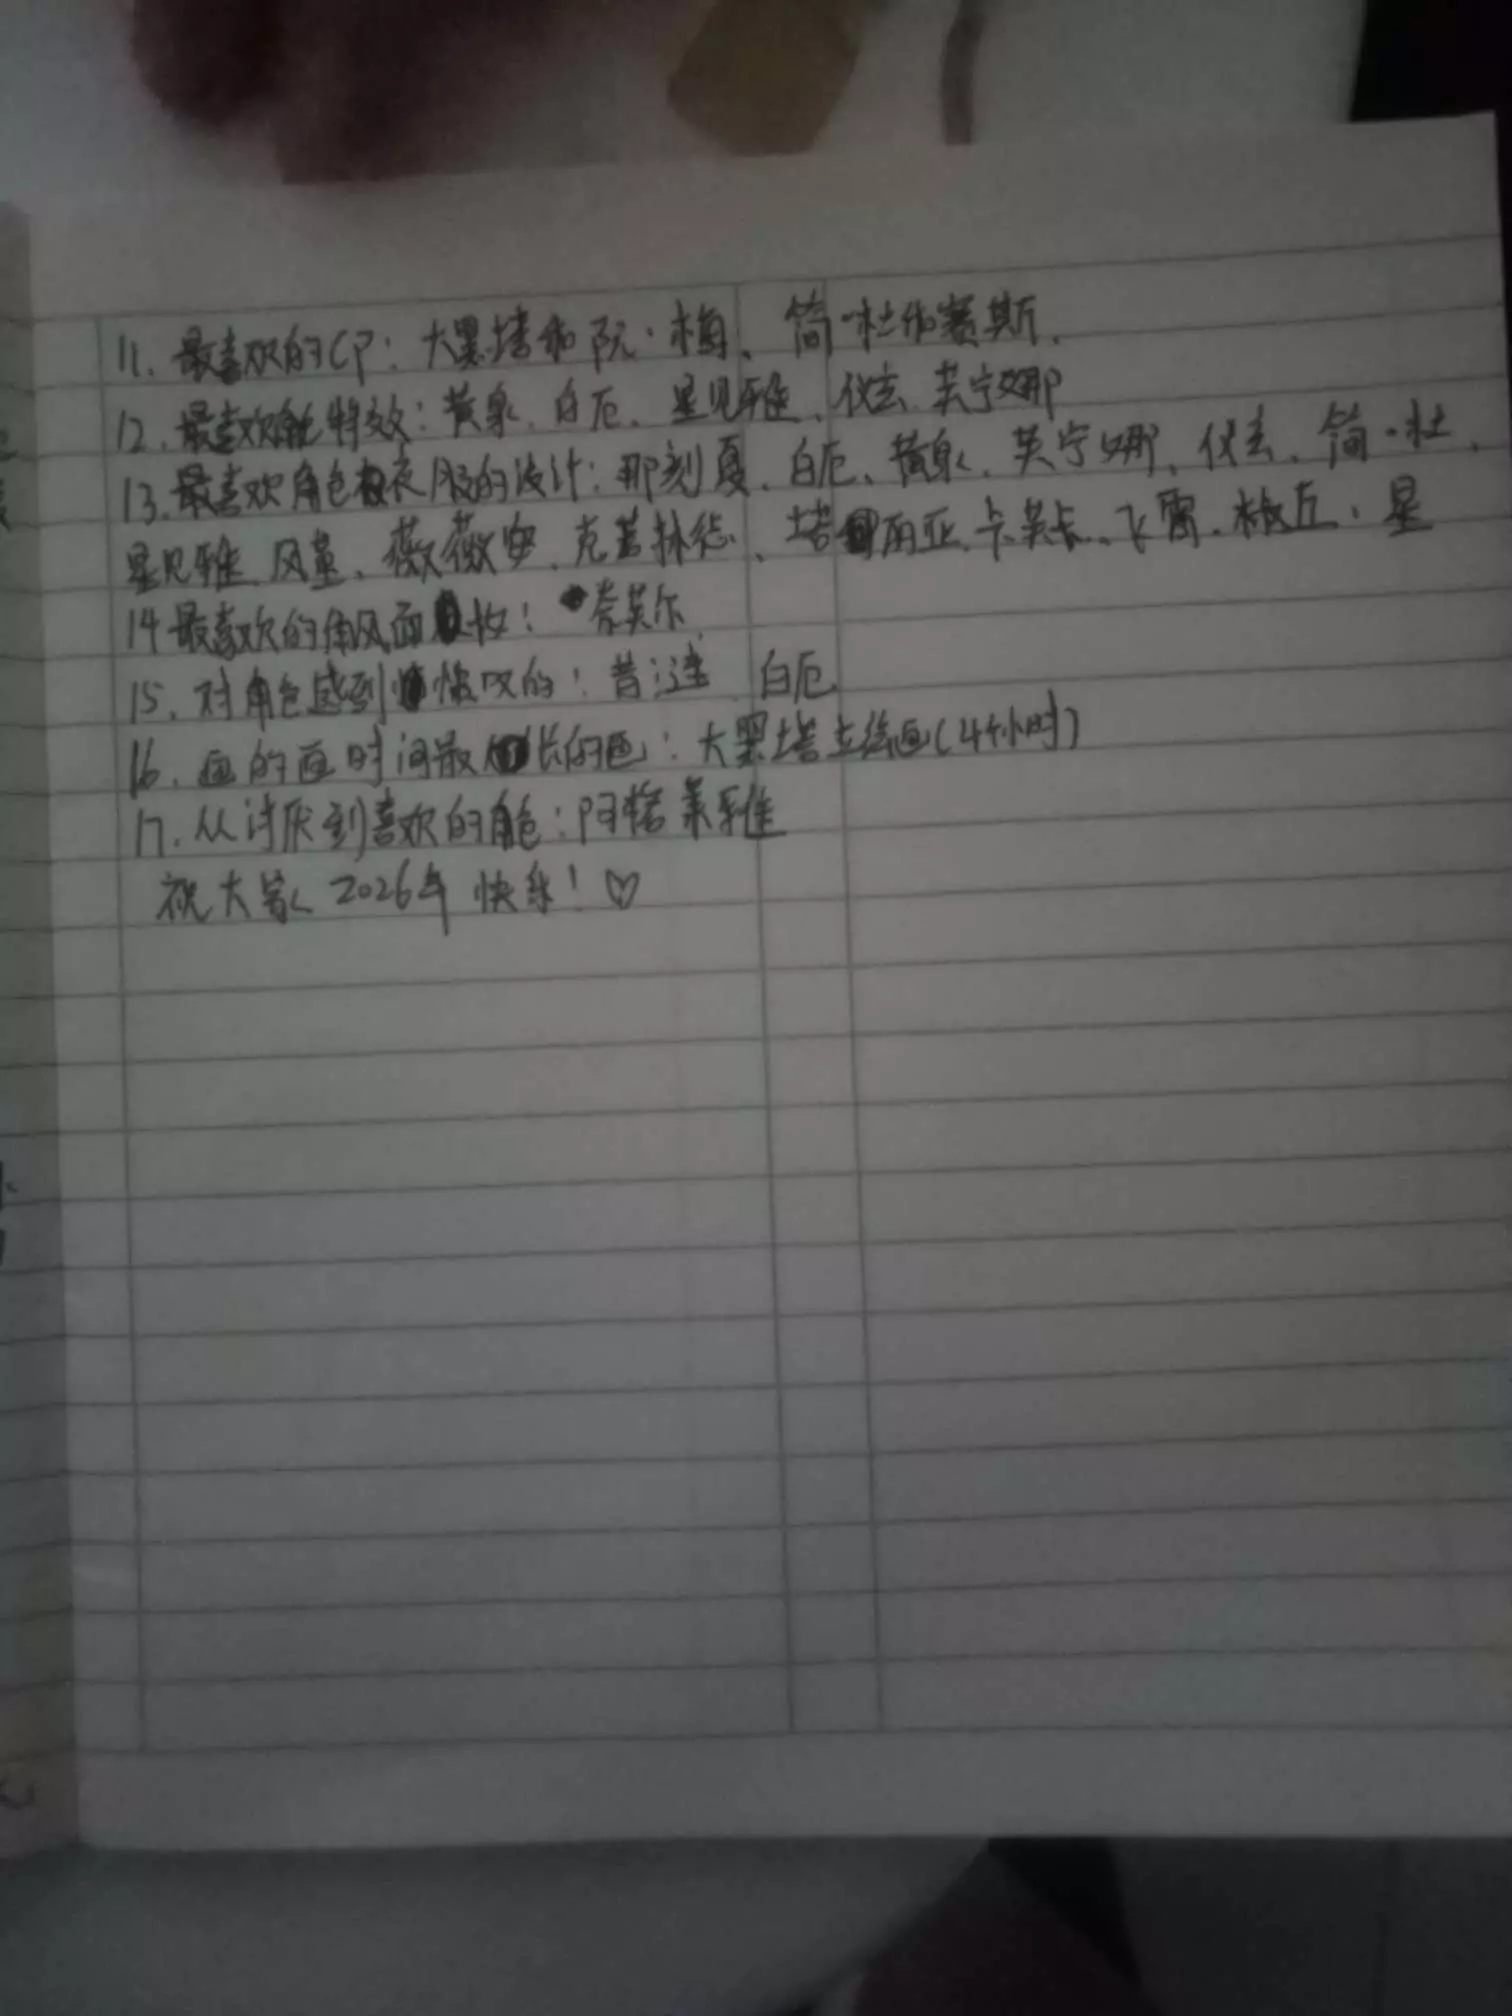 11. 最喜欢的CP: 大黑塔和阮·梅、简·杜和赛斯.
12. 最喜欢的特效: 黄泉、白厄、星见雅、仪玄、芙宁娜
13. 最喜欢角色衣服的设计: 那刻夏、白厄、黄泉、芙宁娜、仪玄、简·杜、
星见雅、风堇、薇薇安、克若林德、塔丽亚、卡芙卡、飞霄、椒丘、星
14 最喜欢的角色面妆: 奈芙尔
15. 对角色感到惊叹的: 昔涟 白厄
16. 画的画时间最长的画: 大黑塔立绘画(4个小时)
17. 从讨厌到喜欢的角色: 阿格莱雅
祝大家 2026年 快乐! ♡